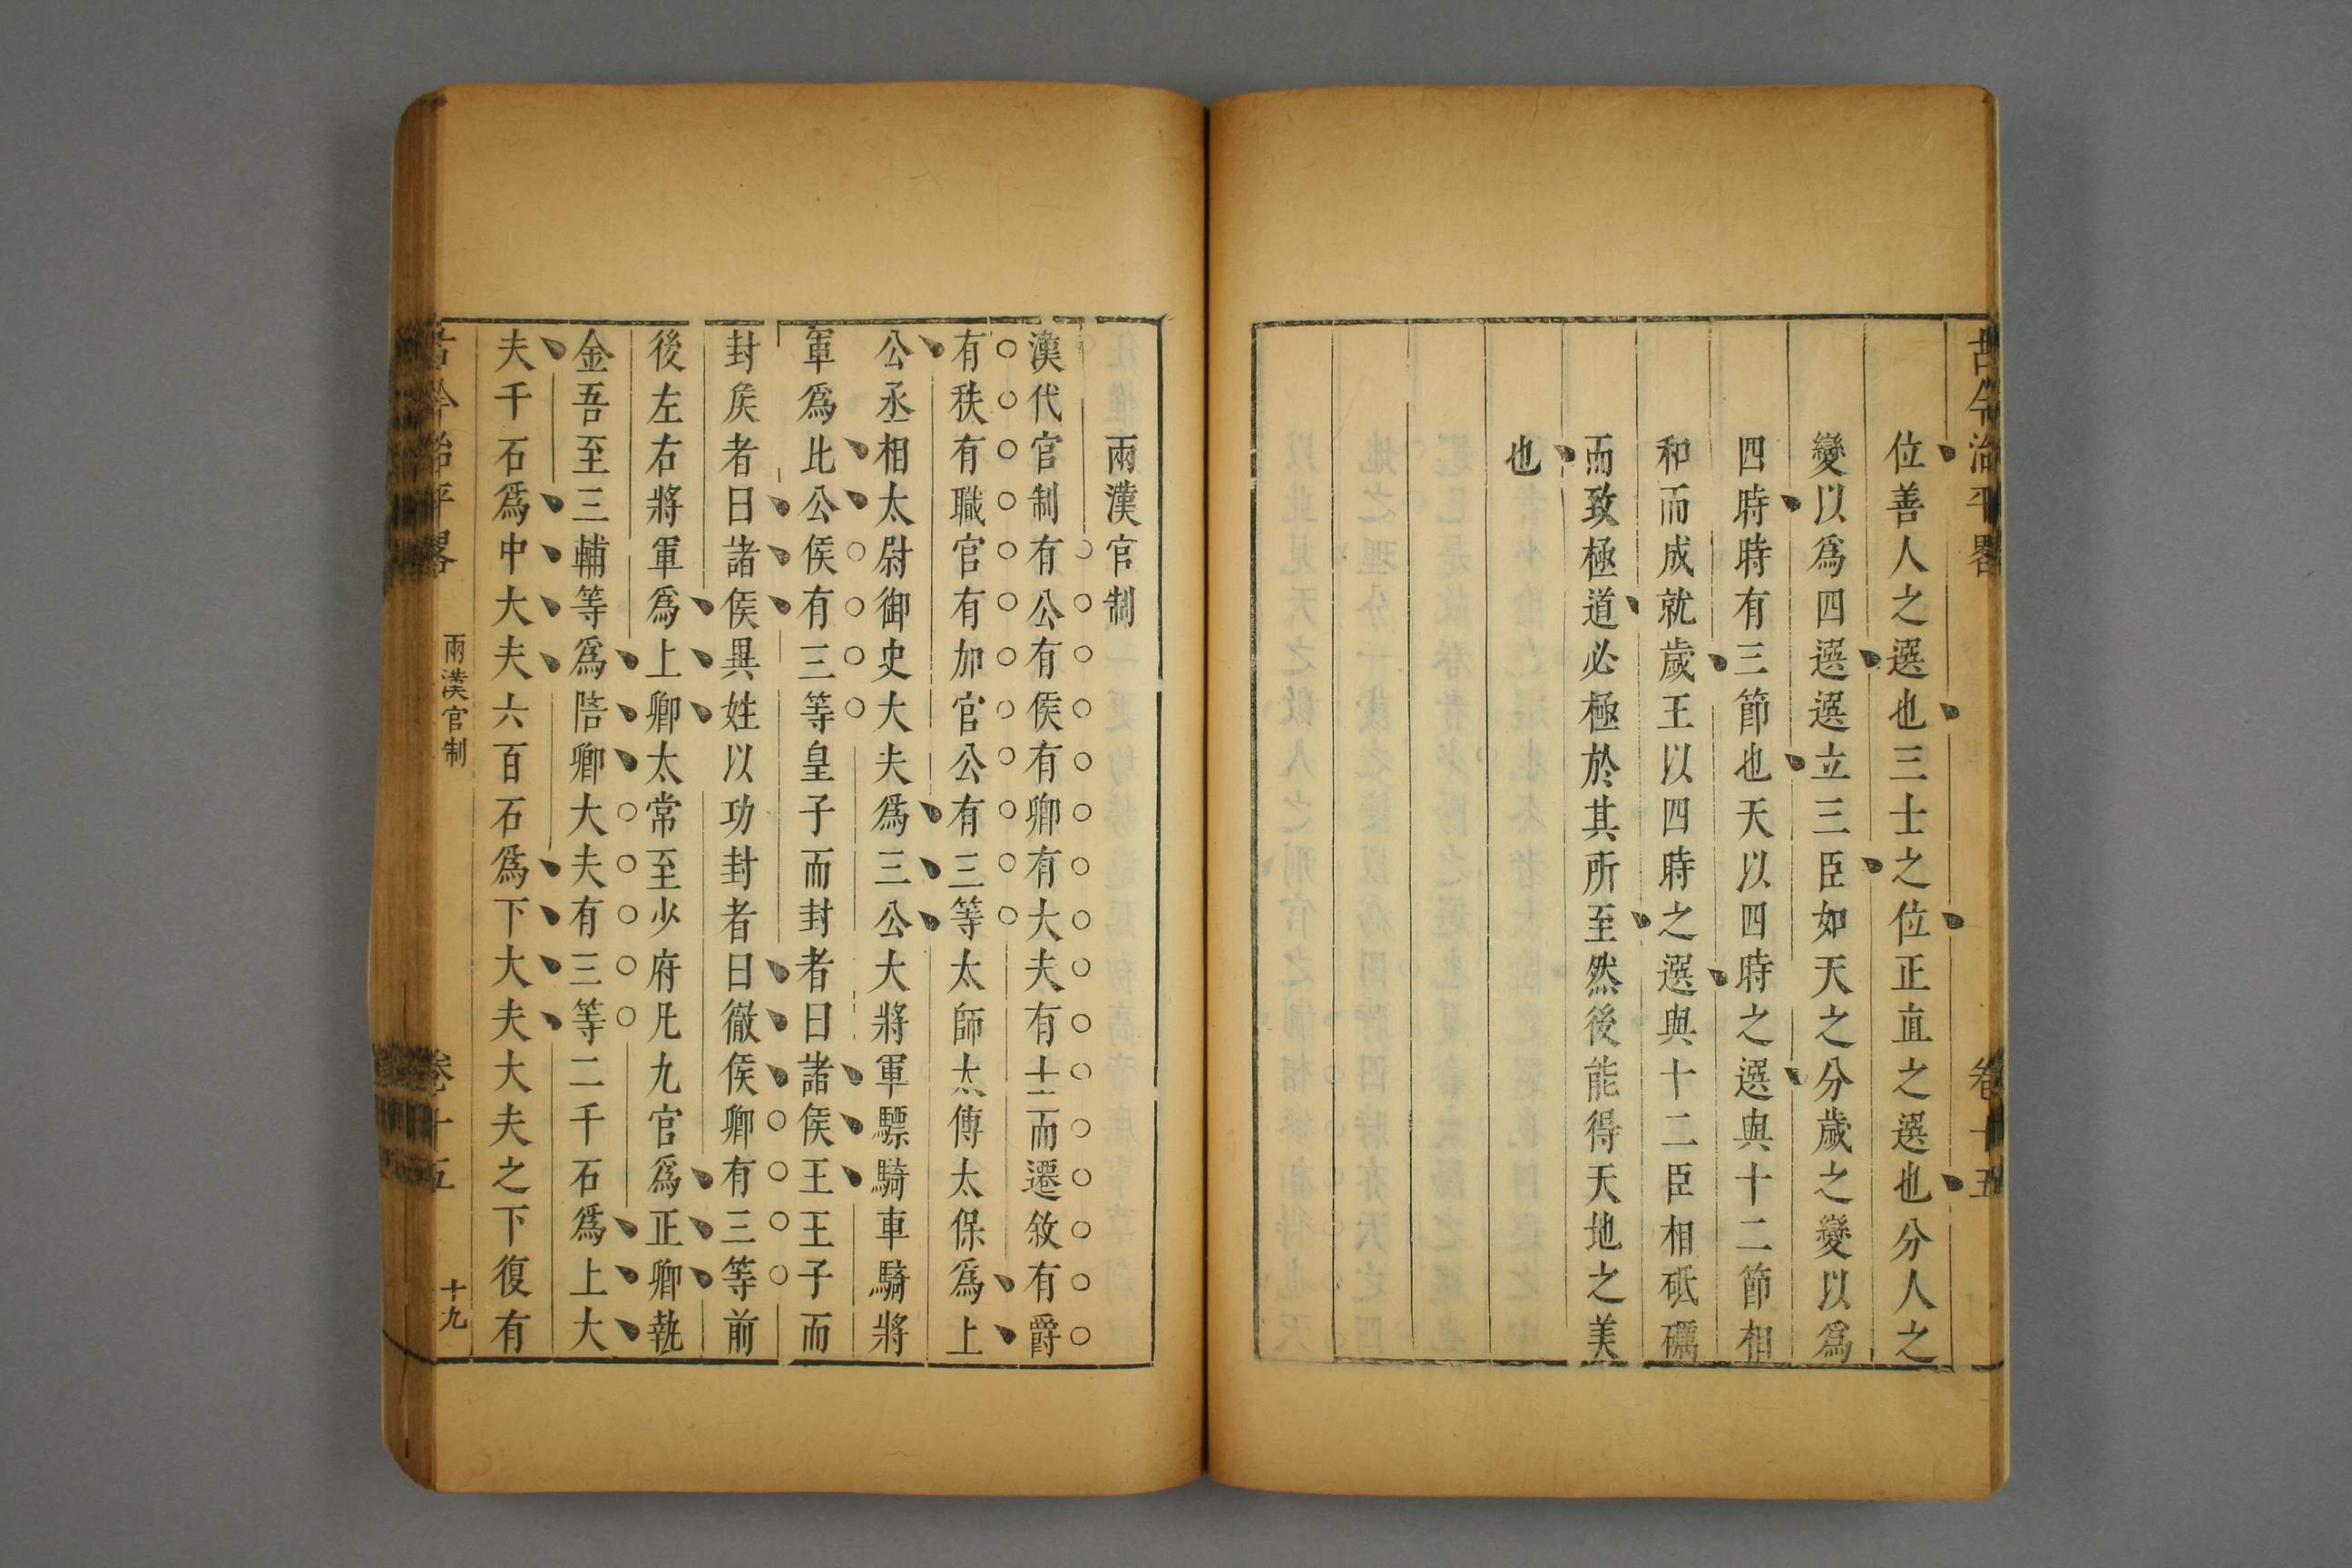 古今治平畧 卷十五
位善人之選也三士之位正直之選也分人之
變以爲四選選立三臣如天之分歲之變以爲
四時時有三節也天以四時之選與十二節相
和而成就歲王以四時之選與十二臣相砥礪
而致極道必極於其所至然後能得天地之美
也
兩漢官制
漢代官制有公有侯有卿有大夫有士而遷敘有爵
有秩有職官有加官公有三等太師太傅太保爲上
公丞相太尉御史大夫爲三公大將軍驃騎車騎將
軍爲比公侯有三等皇子而封者曰諸侯王王子而
封矦者曰諸侯異姓以功封者曰徹侯卿有三等前
後左右將軍爲上卿太常至少府凡九官爲正卿執
金吾至三輔等爲陪卿大夫有三等二千石爲上大
夫千石爲中大夫六百石爲下大夫大夫之下復有
古今治平畧 兩漢官制 卷十五 十九